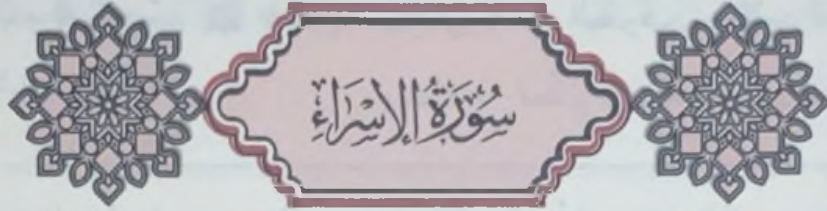 سُورَةُ الإِسْرَاءِ